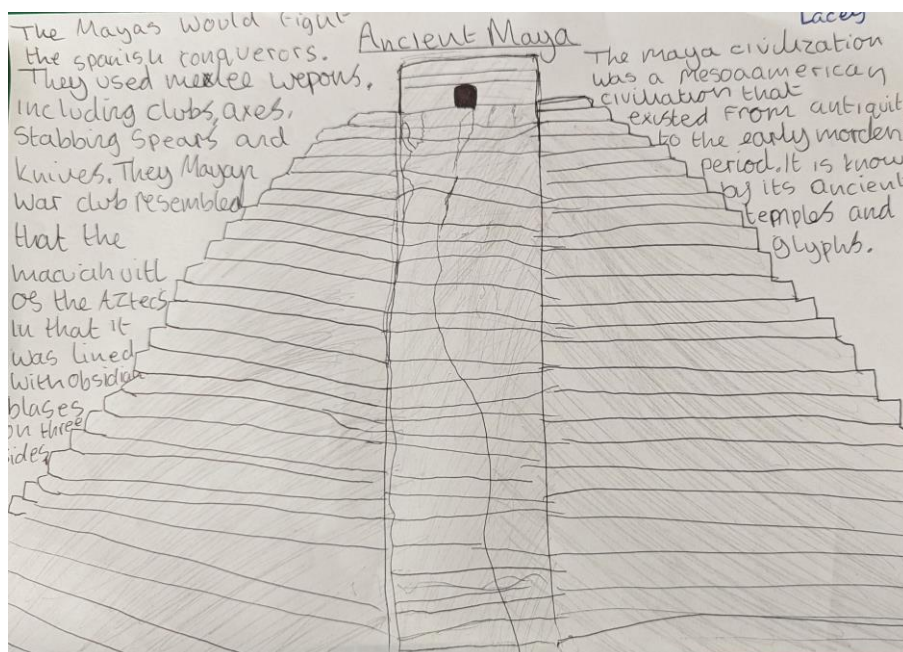 Lacey
Ancient Maya
The Mayas would fight
the spanish conquerors.
They used melee wepons.
including clubs, axes,
Stabbing Spears and
knives. They Mayan
war club resembled
that the
macuahuitl
of the Aztecs
In that it
was lined
with obsidian
blases
on three
sides
The maya civilization
was a mesoaamerican
civiliation that
existed from antiquit
to the early morden
period. It is know
by its ancient
temples and
glyphs.